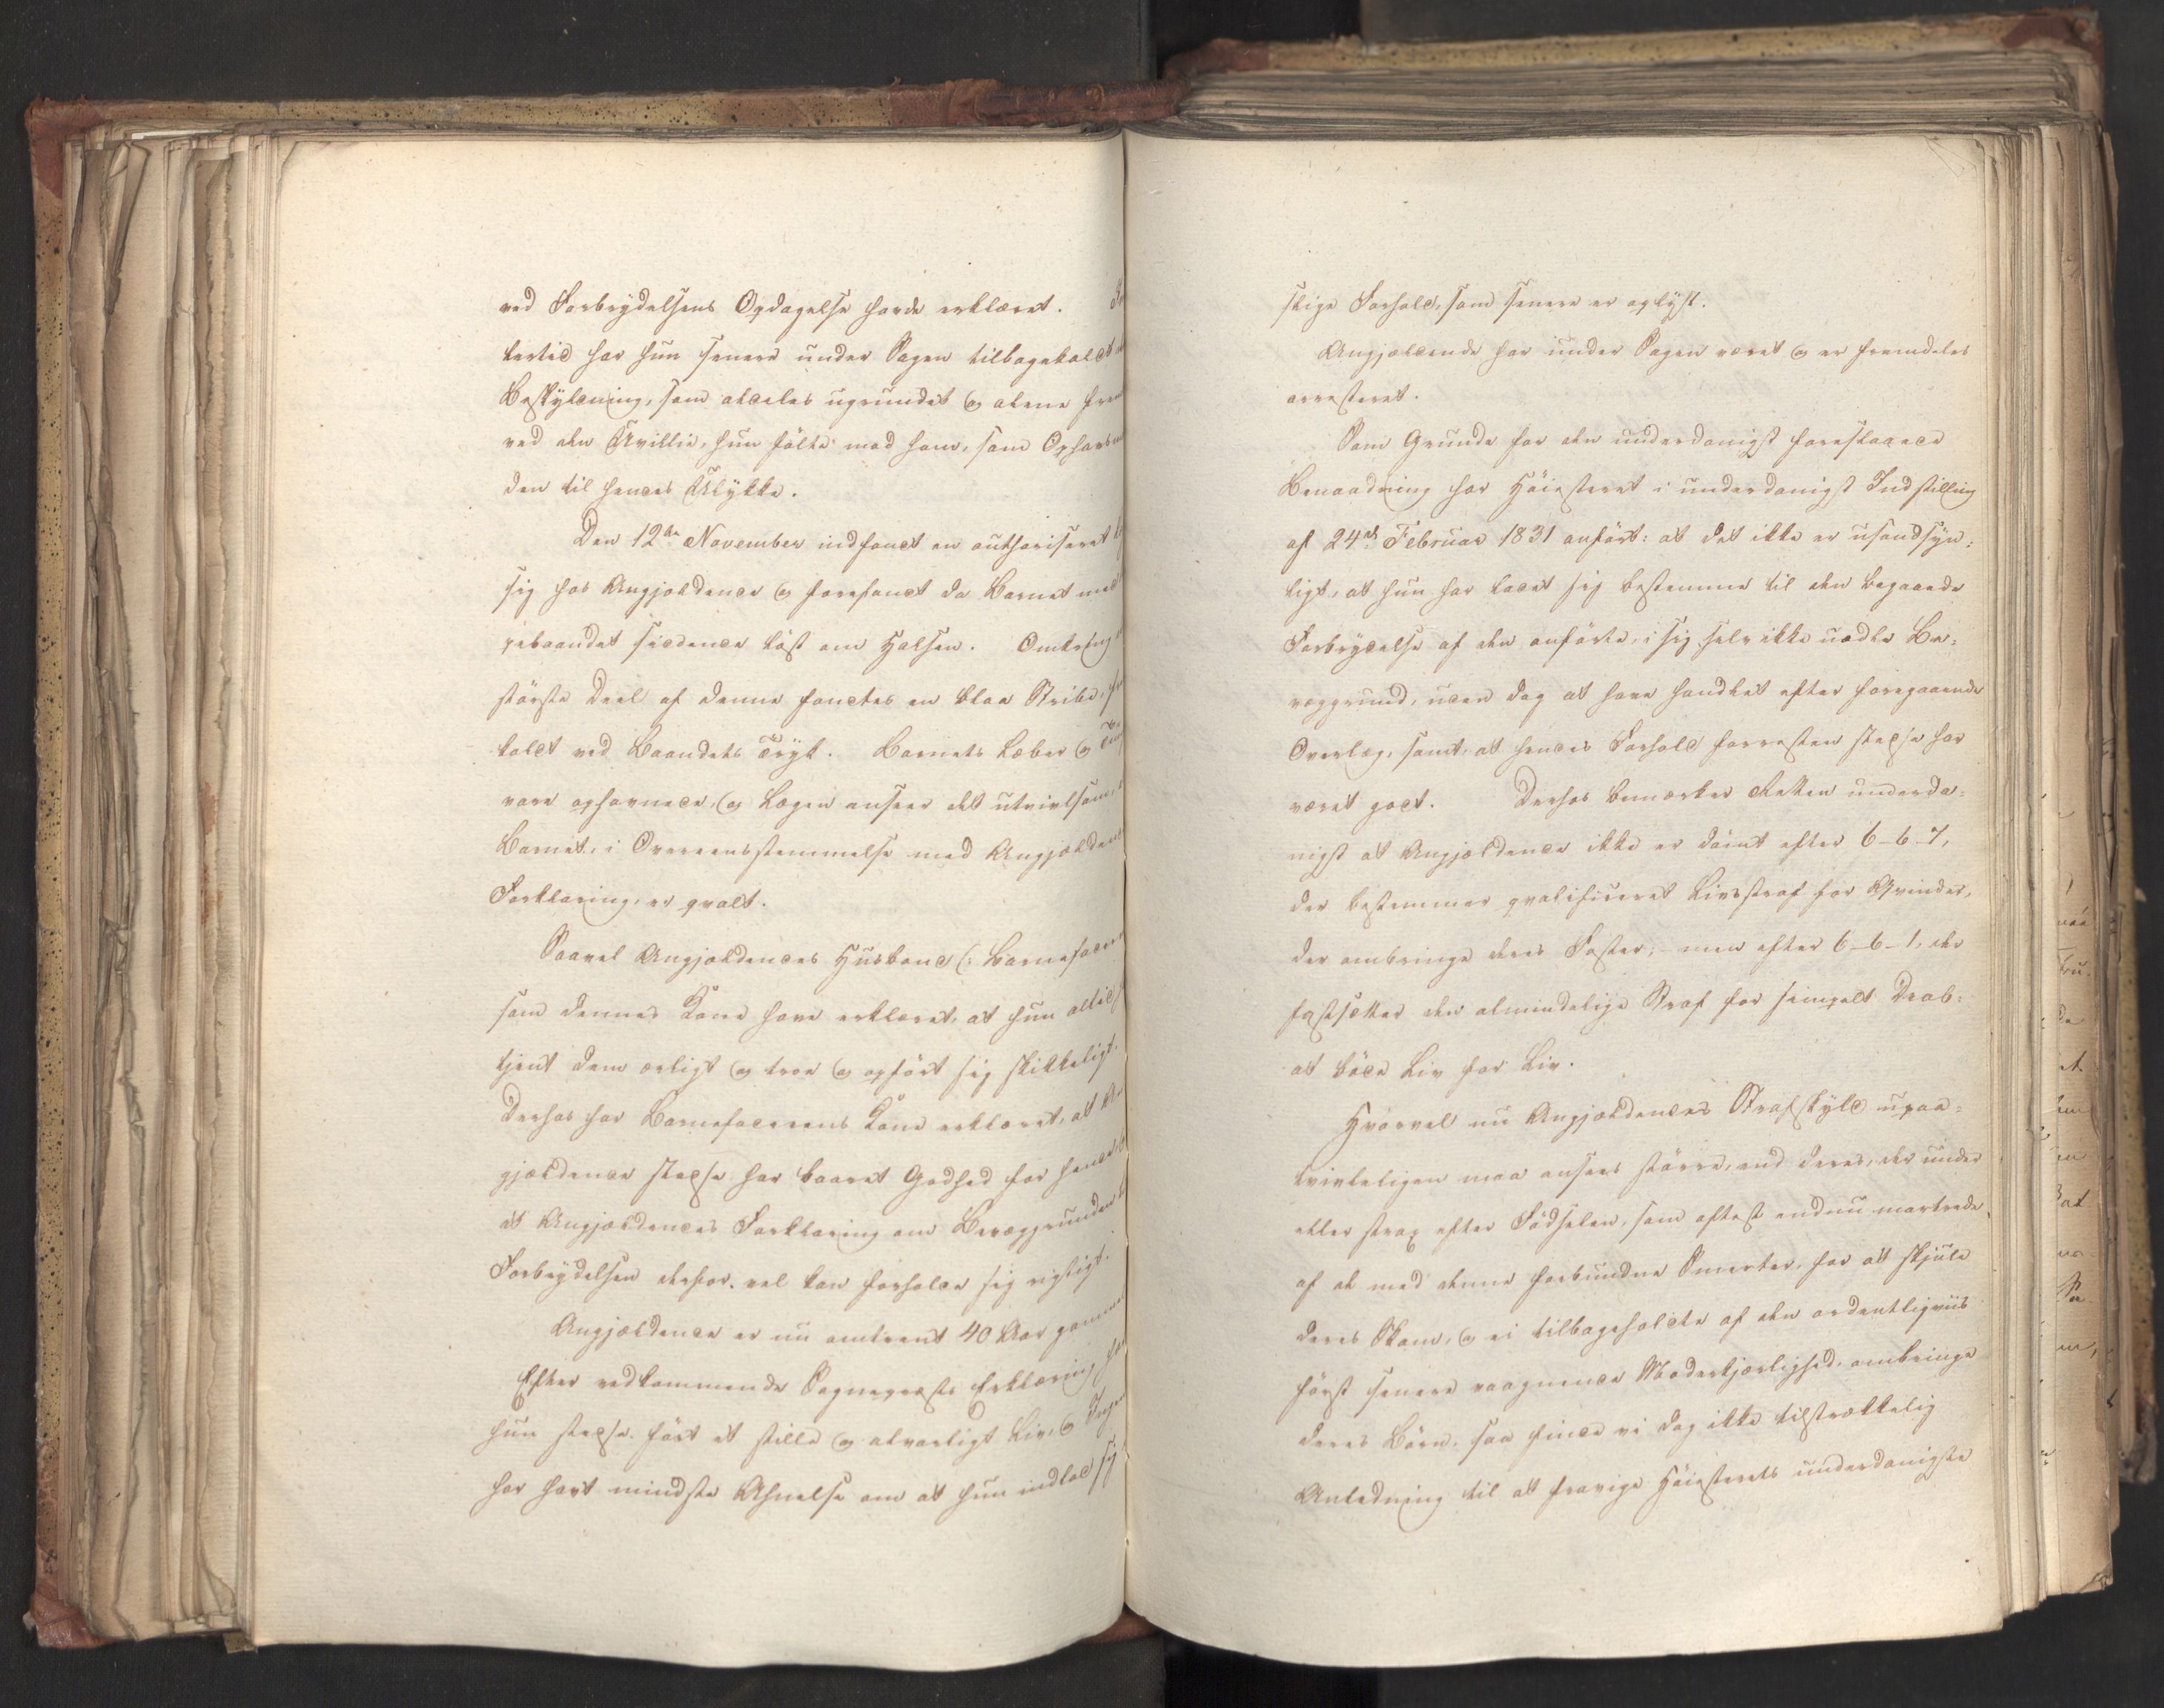 ved Forbrydelsens Opdagelse havde erklæret.
lertid har hun senere under Sagen tilbagekaldt
Beskyldning, som aldeles ugrundet og alene frem
ved den Uvillie, hun følte mod ham, som Ophavsm
den til hendes Ulykke.
Den 12te November indfandt en authoriseret
sig hos Angjældende og forefandt da Barnet med
sebaandet siddende løst om Halsen. Omkring
største Deel af denne fandtes en blaa Stribe,
kaldt ved Baandets Tryk. Barnets Læber og
vare ophovnede, og Lægen anseer det utvivlsomt,
Barnet, i Overeensstemmelse med Angjældendes
Forklaring, er qvalt.
Saavel Angjældendes Huusbond (: Barnefaderen
som dennes Kone have erklæret, at hun altid
tjent dem ærligt og troe og opført sig skikkeligt.
Derhos har Barnefaderens Kone erklæret, at An
gjældende stedse har baaret Godhed for hende,
at Angjældendes Forklaring om Bevæggrunden
Forbrydelsen derfor vel kan forholde sig rigtigt.
Angjældende er nu omtrent 40 Aar gammel
Efter vedkommende Sognepræsts Erklæring har
hun stedse ført et stille og alvorligt Liv, og Ingen
har havt mindste Ahnelse om at hun indlod sig
slige Forhold, som senere er oplyst.
Angjældende har under Sagen været og er fremdeles
arresteret.
Som Grunde for den underdanigst foreslaaede
Benaadning har Høiesteret i underdanigst Indstilling
af 24de Februar 1831 anført: at det ikke er usandsyn-
ligt, at hun har ladet sig bestemme til den begaaede
Forbrydelse af den anførte, i sig selv ikke uædle Be-
væggrund, uden dog at have handlet efter foregaaende
Overlæg, samt, at hendes Forhold forresten stedse har
været godt. Derhos bemærker Retten underda-
nigst at Angjældende ikke er dømt efter 6-6-7,
der bestemmer qvalificeret Livsstraf for Qvinder,
der ombringe deres Foster; men efter 6-6-1, der
fastsætter den almindelige Straf for simpelt Drab:
at bøde Liv for Liv.
Hvorvel nu Angjældendes Strafskyld upaa-
tvivleligen maa ansees større, end deres, der under
eller strax efter Fødselen, som oftest endnu martrede
af de med denne forbundne Smerter, for at skjule
deres Skam, og ei tilbageholdte af den ordentligviis
først senere vaagnende Moderkjærlighed, ombringe
deres Børn, saa finde vi dog ikke tilstrækkelig
Anledning til at fravige Høiesterets underdanigste